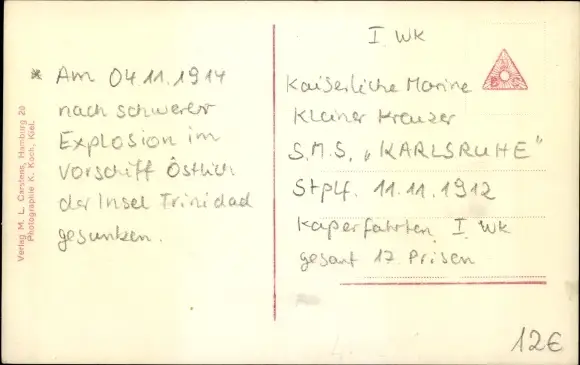 Verlag M. L. Carstens, Hamburg 20
Photographie K. Koch, Kiel.
* Am 04.11.1914
nach schwerer
Explosion im
Vorschiff Östlich
der Insel Trinidad
gesunken.
I WK
Kaiserliche Marine
Kleiner Kreuzer
S.M.S. „KARLSRUHE"
Stplf. 11.11.1912
Kaperfahrten I WK
gesamt 17 Prisen
12€